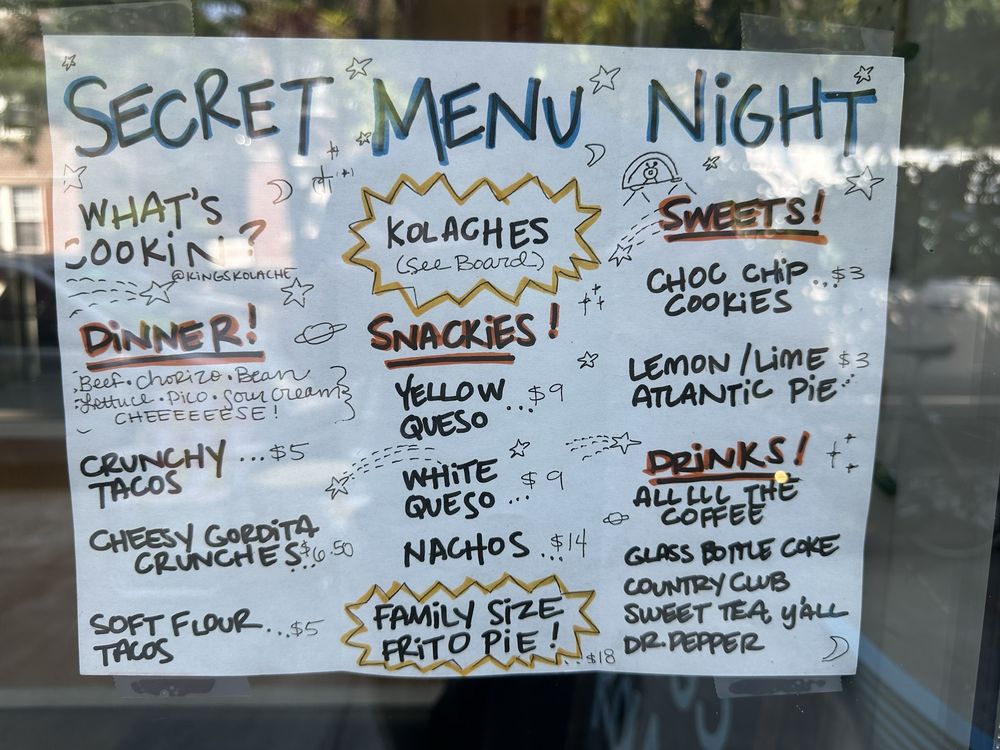 SECRET MENU NIGHT
WHAT'S
COOKIN?
@KINGSKOLACHE
DINNER!
Beef · Chorizo · Bean
Lettuce · Pico · Sour Cream
CHEEEEEESE!
CRUNCHY ... $5
TACOS
CHEESY GORDITA
CRUNCHES $6.50
SOFT FLOUR ... $5
TACOS
KOLACHES
(See Board)
SNACKIES!
YELLOW ... $9
QUESO
WHITE
QUESO ... $9
NACHOS ... $14
FAMILY SIZE
FRITO PIE!
... $18
SWEETS!
CHOC CHIP ... $3
COOKIES
LEMON/LIME $3
ATLANTIC PIE...
DRINKS!
ALLLLL THE
COFFEE
GLASS BOTTLE COKE
COUNTRY CLUB
SWEET TEA, Y'ALL
DR. PEPPER